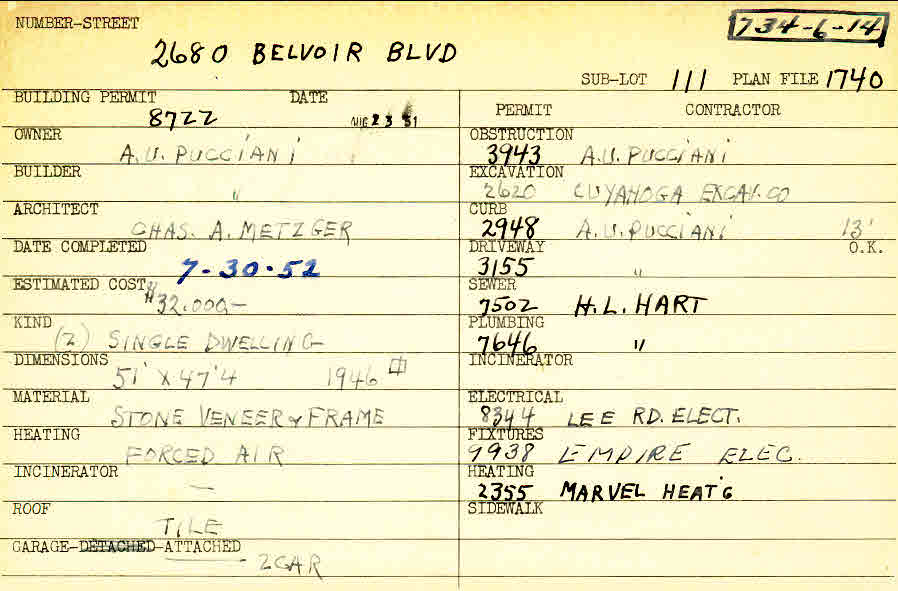 NUMBER-STREET
734-6-14
2680 BELVOIR BLVD
SUB-LOT 111 PLAN FILE 1740
BUILDING PERMIT DATE
8722 AUG 23 51
OWNER
A.U. PUCCIANI
BUILDER
"
ARCHITECT
CHAS. A. METZGER
DATE COMPLETED
7-30-52
ESTIMATED COST
$32,000-
KIND
(2) SINGLE DWELLING
DIMENSIONS
51' X 47'4 1946
MATERIAL
STONE VENEER & FRAME
HEATING
FORCED AIR
INCINERATOR
—
ROOF
TILE
GARAGE-DETACHED-ATTACHED
2 CAR
PERMIT CONTRACTOR
OBSTRUCTION
3943 A.U. PUCCIANI
EXCAVATION
2620 CUYAHOGA EXCAV. CO
CURB
2948 A.U. PUCCIANI 13'
DRIVEWAY O.K.
3155 "
SEWER
7502 H.L. HART
PLUMBING
7646 "
INCINERATOR
ELECTRICAL
8344 LEE RD. ELECT.
FIXTURES
9938 EMPIRE ELEC.
HEATING
2355 MARVEL HEAT'G
SIDEWALK